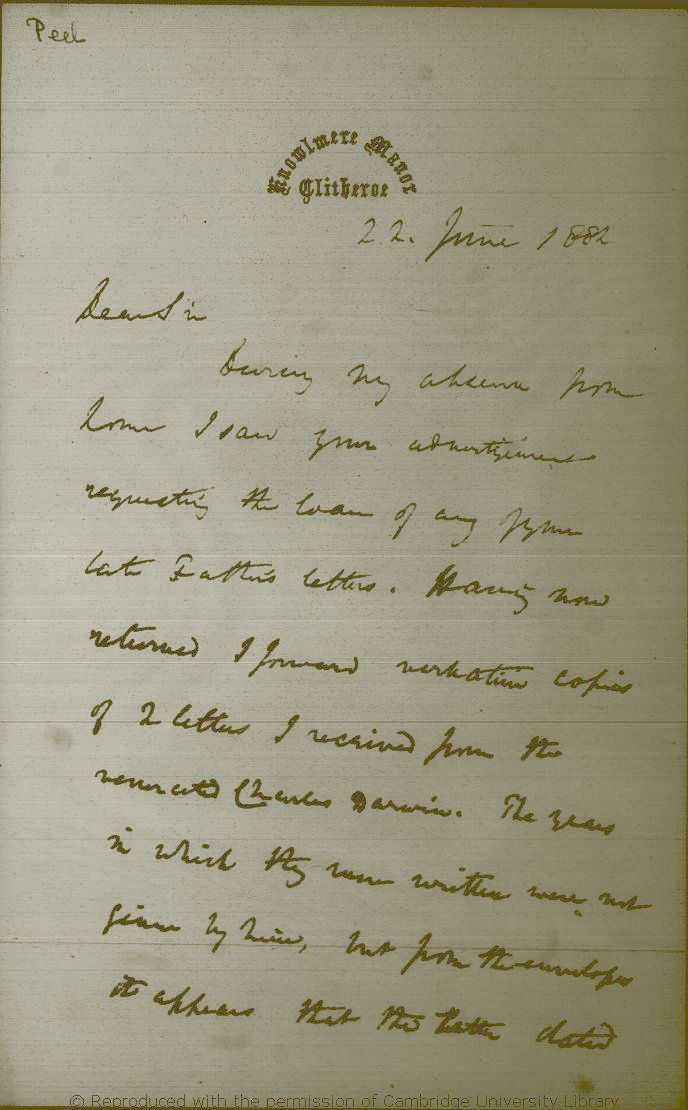 Peel
Knowlmere Manor
Clitheroe
22. June 1882
Dear Sir
During my absence from
home I saw your advertisement
requesting the loan of any of your
late Father's letters. Having now
returned I forward verbatim copies
of 2 letters I received from the
venerated Charles Darwin. The years
in which they were written were not
given by him, but from the envelopes
it appears that the letter dated
© Reproduced with the permission of Cambridge University Library